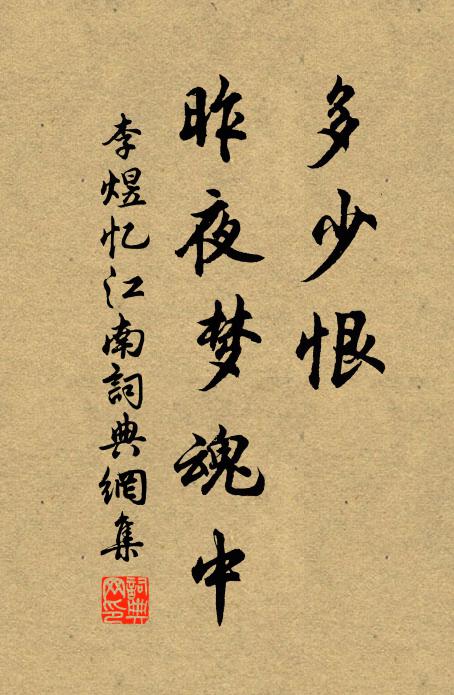 多少恨
昨夜梦魂中
李煜忆江南詞典網集
詞典网印